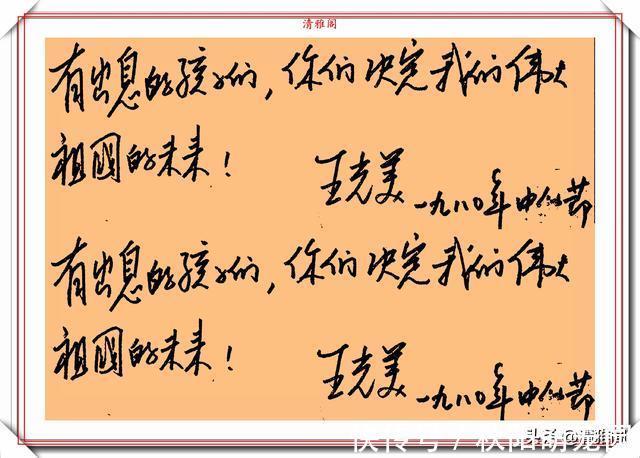 清雅阁
有出息的孩子们,你们决定我们伟大
祖國的未来! 王光美 一九八〇年中秋节
有出息的孩子们,你们决定我们伟大
祖國的未来! 王光美 一九八〇年中秋节
头条@清雅阁
快传号 /